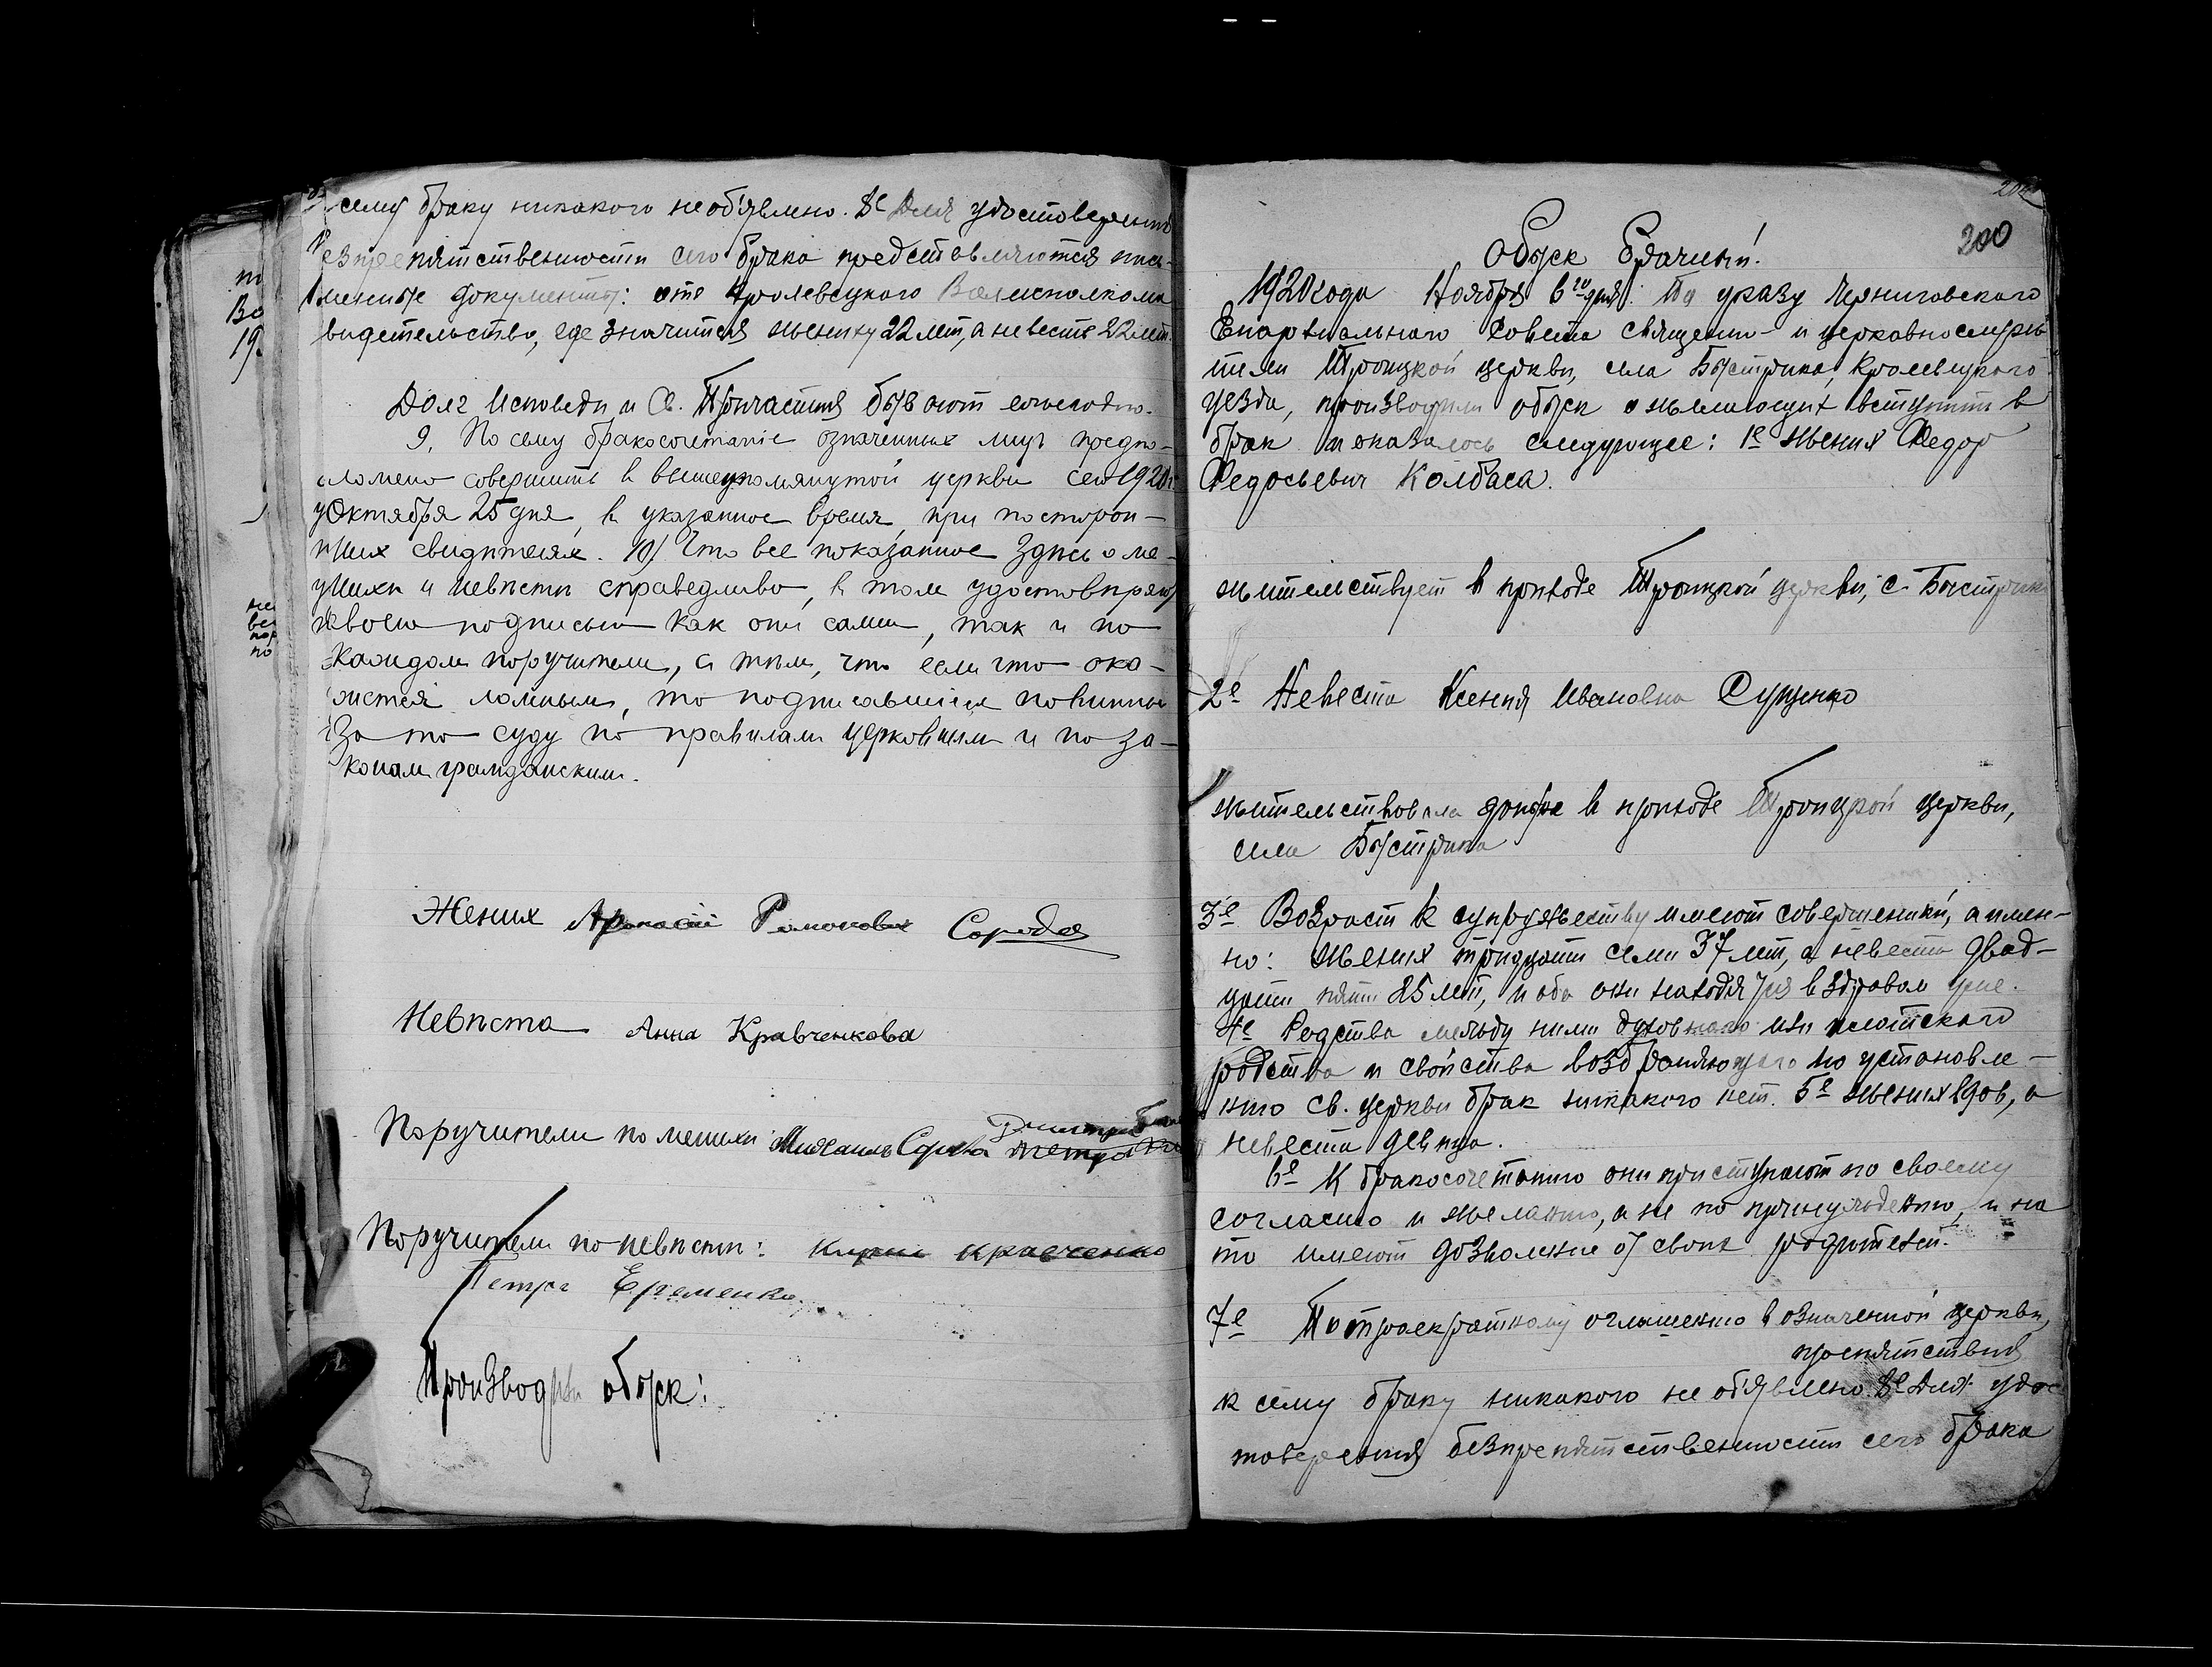 сему браку никакого не объявлено. 8е Для удостоверения
безпрепятственности сего брака представляются пись-
менные документы: от Кролевецкого Волисполкома
видетельство, где значится жениху 22 лет, а невесте 22 лет.
Долг Исповеди и Св. Причастия бывают ежегодно.
9. По сему бракосочетаніе означенных лиц предпо-
ложено совершить в вышеупомянутой церкви сего 1920 г.
Октября 25 дня, в указанное время, при посторон-
них свидѣтелях. 10/ Что все показанное здѣсь о же-
нихѣ и невѣстѣ справедливо, в том удостовѣряют
своею подписью как они сами, так и по
каждом поручители, с тѣм, что если что ока-
жется ложным, то подписавшіеся повинны
за то суду по правилам церковным и по за-
конам гражданским.
Жених Афанасій Романович Сорода
Невѣста Анна Кравченкова
Дмитрий
Поручители по женихѣ: Михаил Сорода Петра
Поручители по невѣстѣ: Кравченко
Петра Еременко.
Производили обыск:
200
Обыск Брачный.
1920 года Ноября 6го дня. По указу Черниговского
Епархиального Совета священно- и церковнослужи
тели Троицкой церкви, села Быстрика, Кролевецкого
уезда, производили обыск о желающих вступить в
брак и оказалось следующее: 1е Жених Федор
Федосьевич Колбаса.
жительствует в приходе Троицкой церкви, с. Быстрика
2е Невеста Ксения Ивановна Сущенко
жительствовала доныне в приходе Троицкой церкви,
села Быстрика
3е Возраст к супружеству имеют совершенный, а имен-
но: жених тридцати семи 37 лет, а невеста двад-
цати пяти 25 лет, и оба они находятся в здравом уме.
4е Родства между ними духовнаго или плотского
родства и свойства возбраняющаго по установле-
нию св. церкви брак никакого нет. 5е жених вдов, а
невеста девица.
6е К бракосочетанию они приступают по своему
согласию и желанию, а не по принуждению, и на
то имеют дозволение от своих родителей.
7е По троекратному оглашению в означенной церкви,
препятствия
к сему браку никакого не объявлено. 8е Для удос
товерения безпрепятственности сего брака